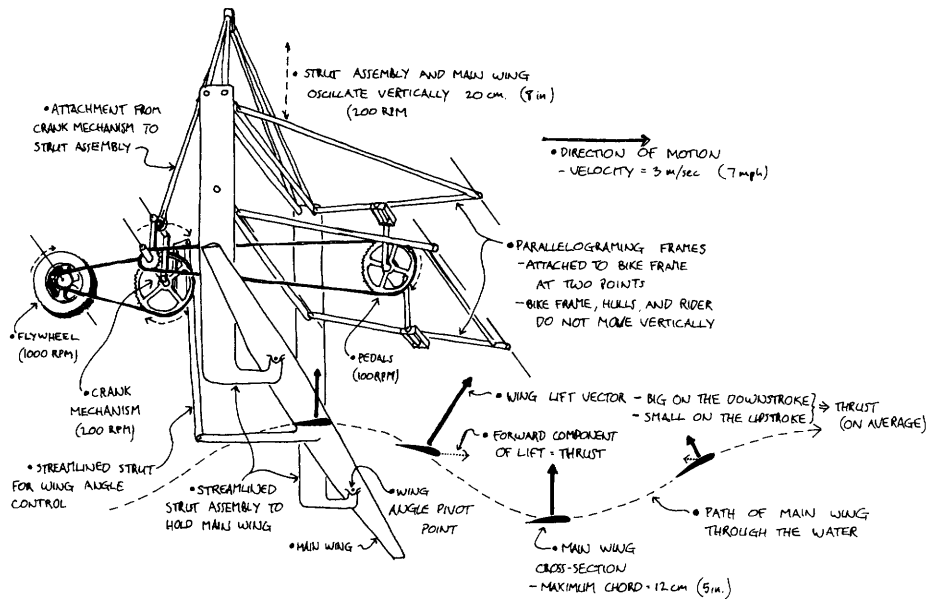 • STRUT ASSEMBLY AND MAIN WING
OSCILLATE VERTICALLY 20 cm. (8 in)
(200 RPM
• ATTACHMENT FROM
CRANK MECHANISM TO
STRUT ASSEMBLY
• DIRECTION OF MOTION
- VELOCITY = 3 m/sec (7 mph)
• PARALLELOGRAMING FRAMES
- ATTACHED TO BIKE FRAME
AT TWO POINTS
- BIKE FRAME, HULLS, AND RIDER
DO NOT MOVE VERTICALLY
• FLYWHEEL
(1000 RPM)
• PEDALS
(100 RPM)
• CRANK
MECHANISM
(200 RPM)
• WING LIFT VECTOR - BIG ON THE DOWNSTROKE
- SMALL ON THE UPSTROKE
⇒ THRUST
(ON AVERAGE)
• FORWARD COMPONENT
OF LIFT = THRUST
• STREAMLINED STRUT
FOR WING ANGLE
CONTROL
• STREAMLINED
STRUT ASSEMBLY TO
HOLD MAIN WING
• WING
ANGLE PIVOT
POINT
• PATH OF MAIN WING
THROUGH THE WATER
• MAIN WING
• MAIN WING
CROSS-SECTION
- MAXIMUM CHORD = 12 cm (5 in.)